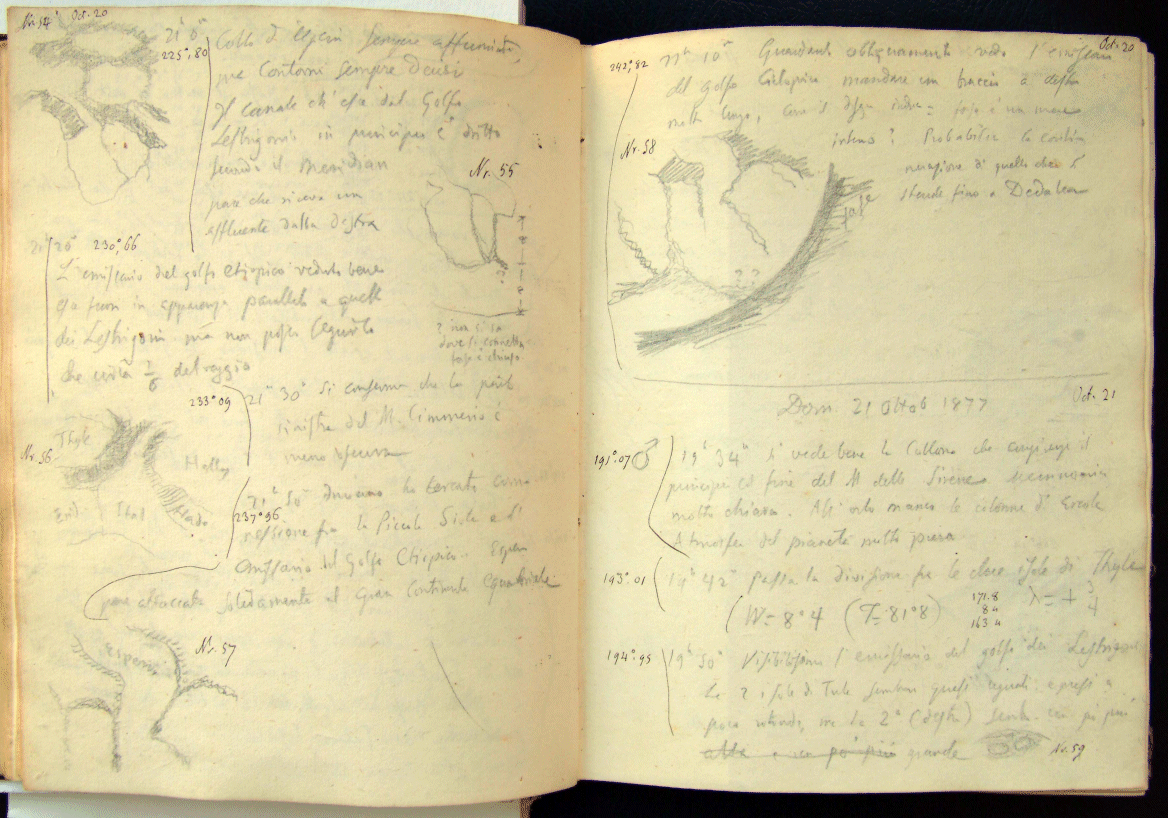 Nr. 54 Oct. 20
21h 0m
225°,80
Collo di Esperia sempre affumicato,
pure contorni sempre decisi
Il canale ch' esce dal Golfo
Lestrigoni in principio è dritto
secondo il meridian
pare che riceva un
affluente dalla destra
Nr. 55
? non si sa
dove si connetta
forse è chiuso
230°,66
L'emissario del golfo etiopico veduto bene
esso forma in apparenza parallelo a quello
dei Lestrigoni ma non posso seguirlo
che circa 1/6 del raggio
233°09
21h 30m Si conferma che la parte
sinistra del M. Cimmerio è
meno oscura
Nr. 56
Thyle
Ital
21h 50m
237°96
la Piccola Sirte e l'
emissario del Golfo Etiopico. Esperia
pure attaccata solidamente al gran continente equatoriale
Esperia
Nr. 57
Oct. 20
242°,82
22h 10m Guardando obliquamente vedo l'emissario
del golfo Etiopico mandare un braccio a destra
molto lungo, come il disegno indica: forse è un mare
interno? Probabile la contin
nuazione di quello che si
stende fino a Dedalea
Nr. 58
? ?
Dom. 21 Ottob 1877
Oct. 21
191°.07 ♂
19h 34m si vede bene la Collana che congiunge il
principio col fine del M delle Sirene
molto chiara. All' orlo manco le colonne di Ercole
Atmosfera del pianeta molto pura
193°.01
19h 42m passa la divisione fra le due isole di Thyle
(W = 8°4 (T = 81°8)
171.8
8 4
163.4
λ = + 3/4
194°.95
19h 50m Visibilissimo l'emissario del golfo dei Lestrigoni
Le 2 isole di Tule sembrano quasi eguali, e presso a
poco rotonde, ma la 2a (destra) sembra un po' più
alta e un po' più grande
Nr. 59